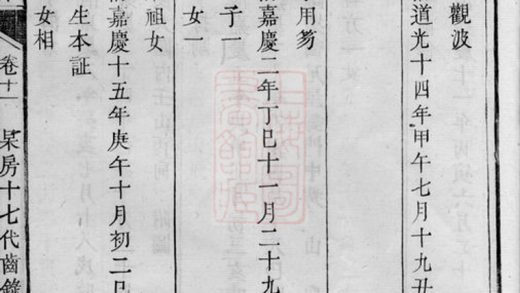 觀波
道光十四年甲午七月十九丑
用芴
嘉慶二年丁巳十一月二十九
子一
女一
祖女
嘉慶十五年庚午十月初二巳
生本証
女相
卷十一 杲房十七代齒錄